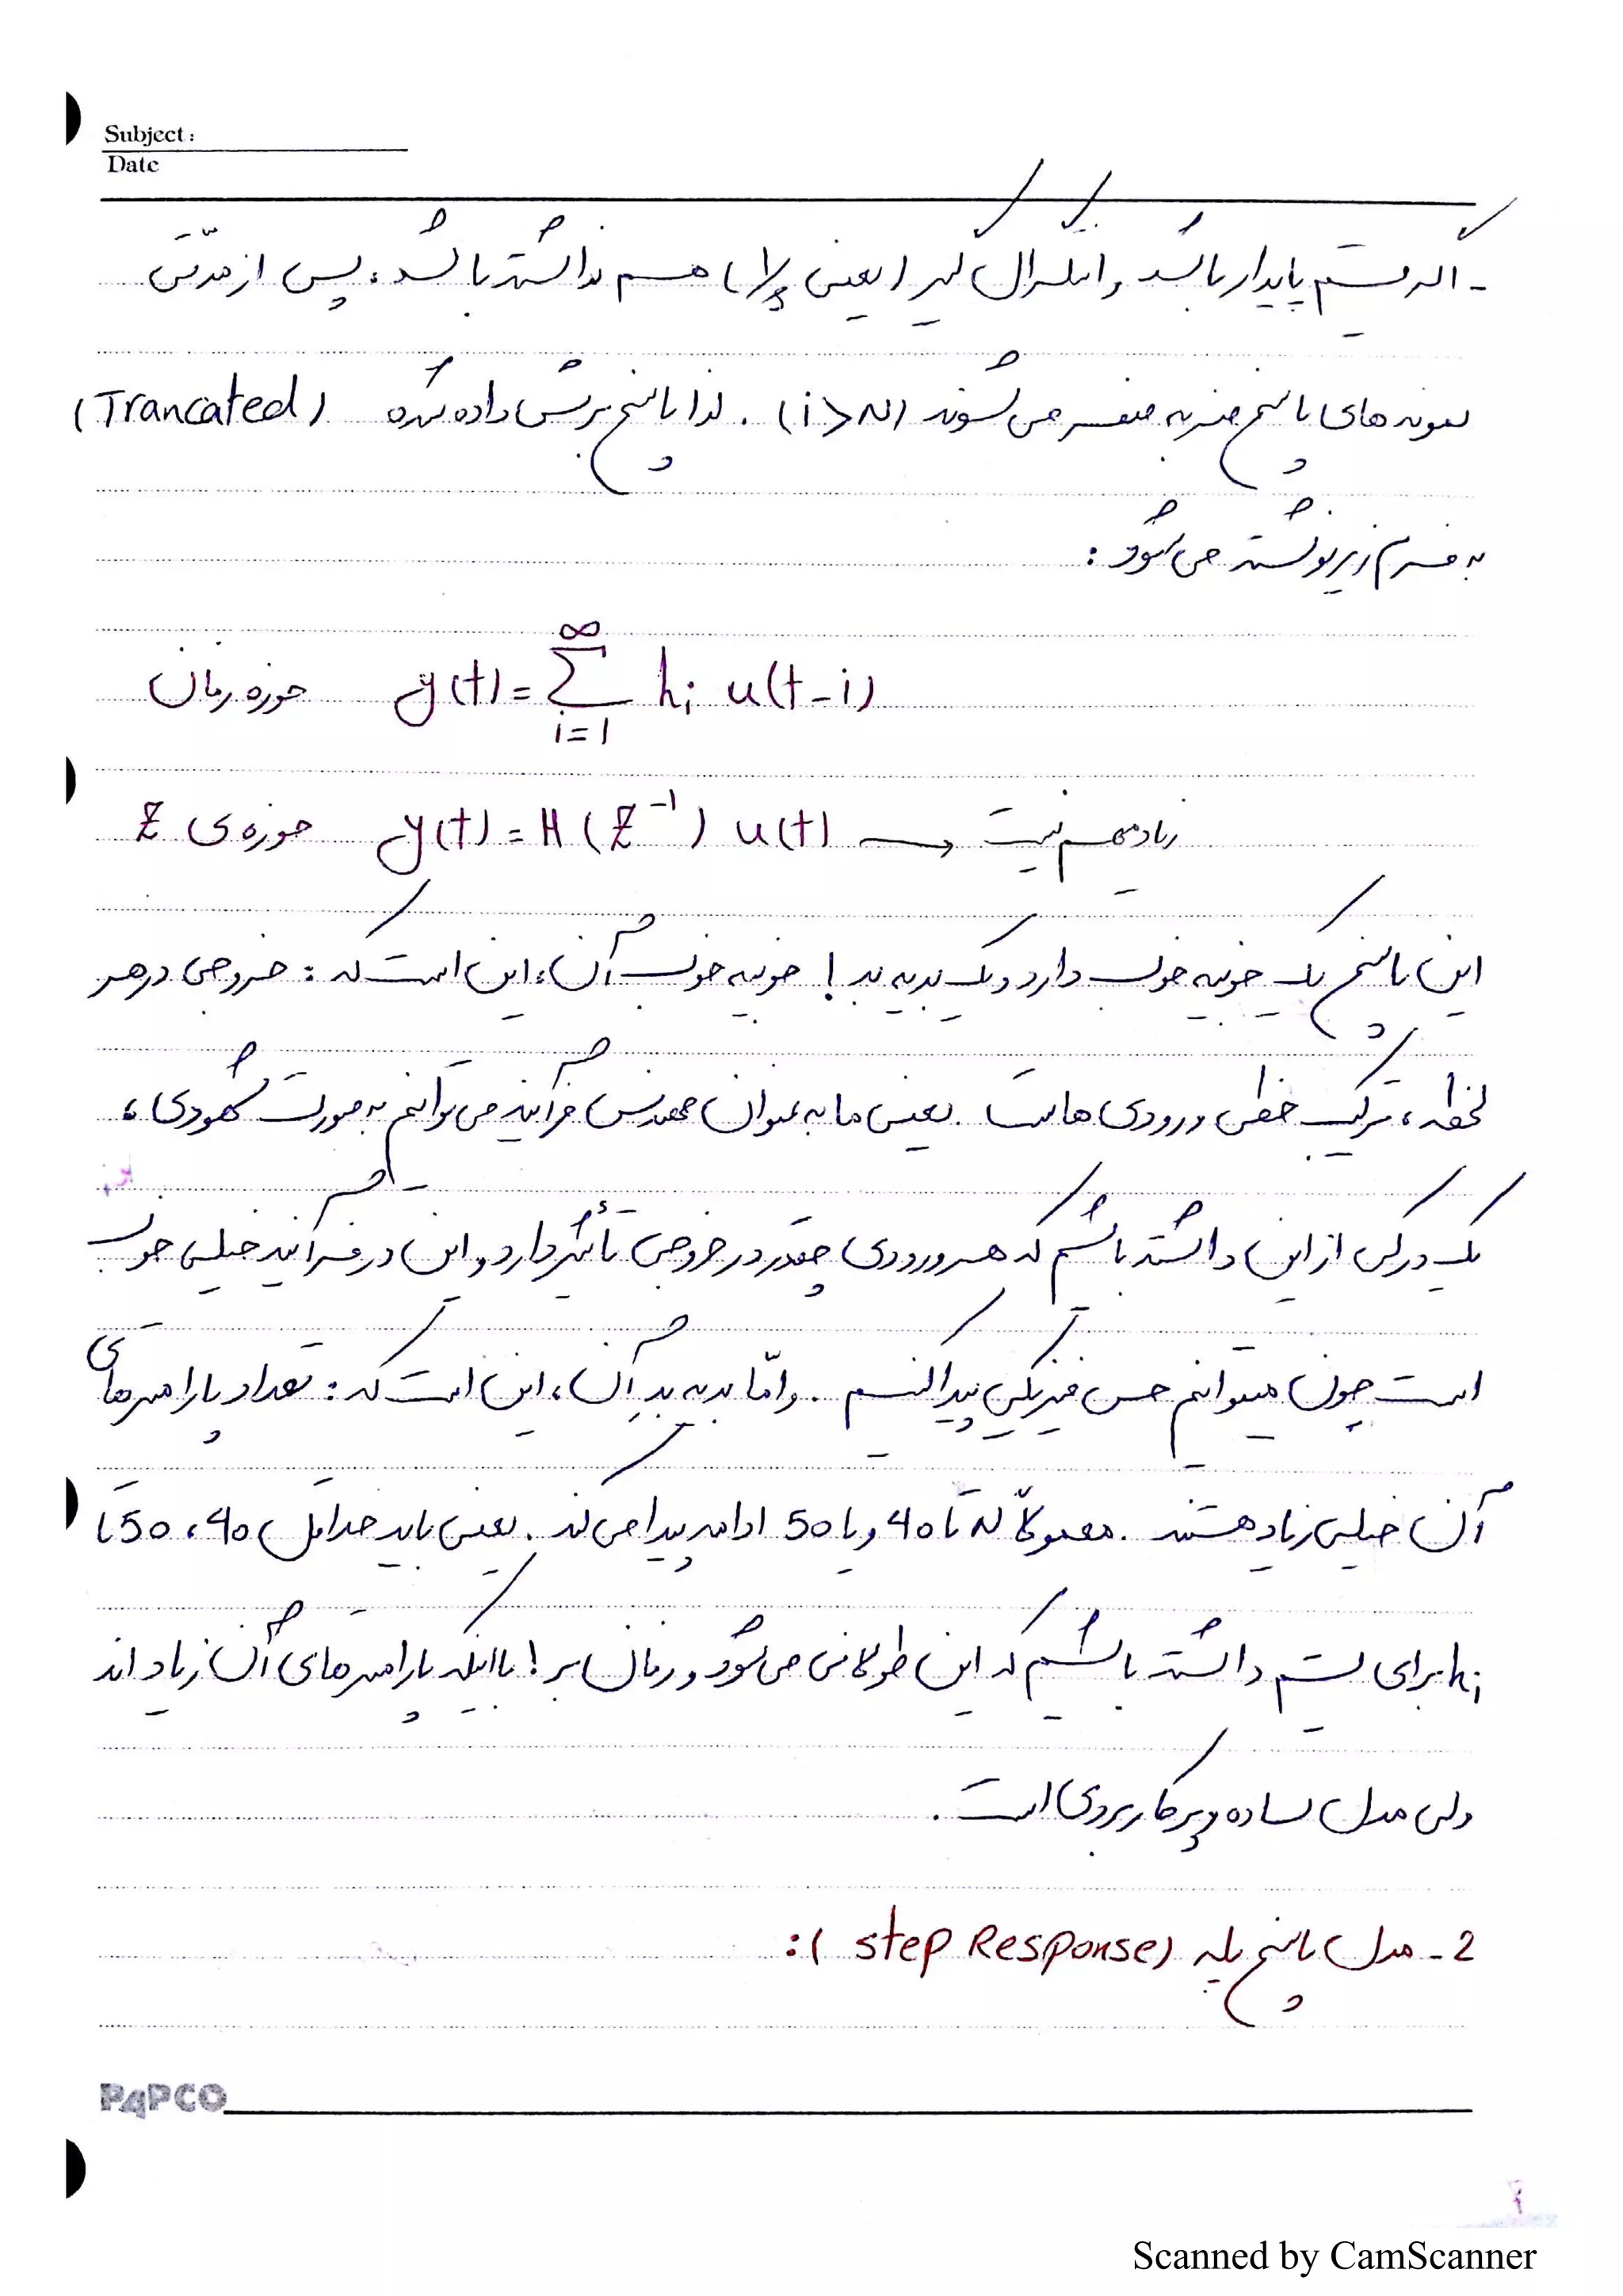 Subject:
Date
- اگر سیستم پایدار باشد و انتگرال گیر (یعنی 1/s) هم نداشته باشد، پس از مدّتی
نمونه های پاسخ ضربه صفر می شوند (i>N). لذا پاسخ برش داده شده (Trancated)
به فرم زیر نوشته می شود:
حوزه زمان y(t) = ∞ Σ i=1 hi u(t-i)
حوزه ی Z y(t) = H(Z⁻¹) u(t) → زیاد مهم نیست
این پاسخ یک خوبیه خوب دارد و یک بدیه بد! خوبیه خوب آن، این است که: خروجی در هر
لحظه، ترکیب خطی ورودی هاست. یعنی ما به عنوان مهندس فرآیند می توانیم به صورت شهودی،
یک درکی از این داشته باشیم که هر ورودی چقدر در خروجی تأثیر دارد و این در فرآیند خیلی خوب
است چون میتوانیم حس فیزیکی پیدا کنیم. و امّا بدیه بد آن، این است که: تعداد پارامترهای
آن خیلی زیاد هستند. معمولاً N تا 40 و یا 50 ادامه پیدا می کند. یعنی باید حداقل 40، 50 تا
hi برای سیستم داشته باشیم که این طولانی می شود و زمان بر! با اینکه پارامترهای آن زیاد اند
ولی مدل ساده و پرکاربردی است.
2- مدل پاسخ پله (step Response):
PAPCO
Scanned by CamScanner